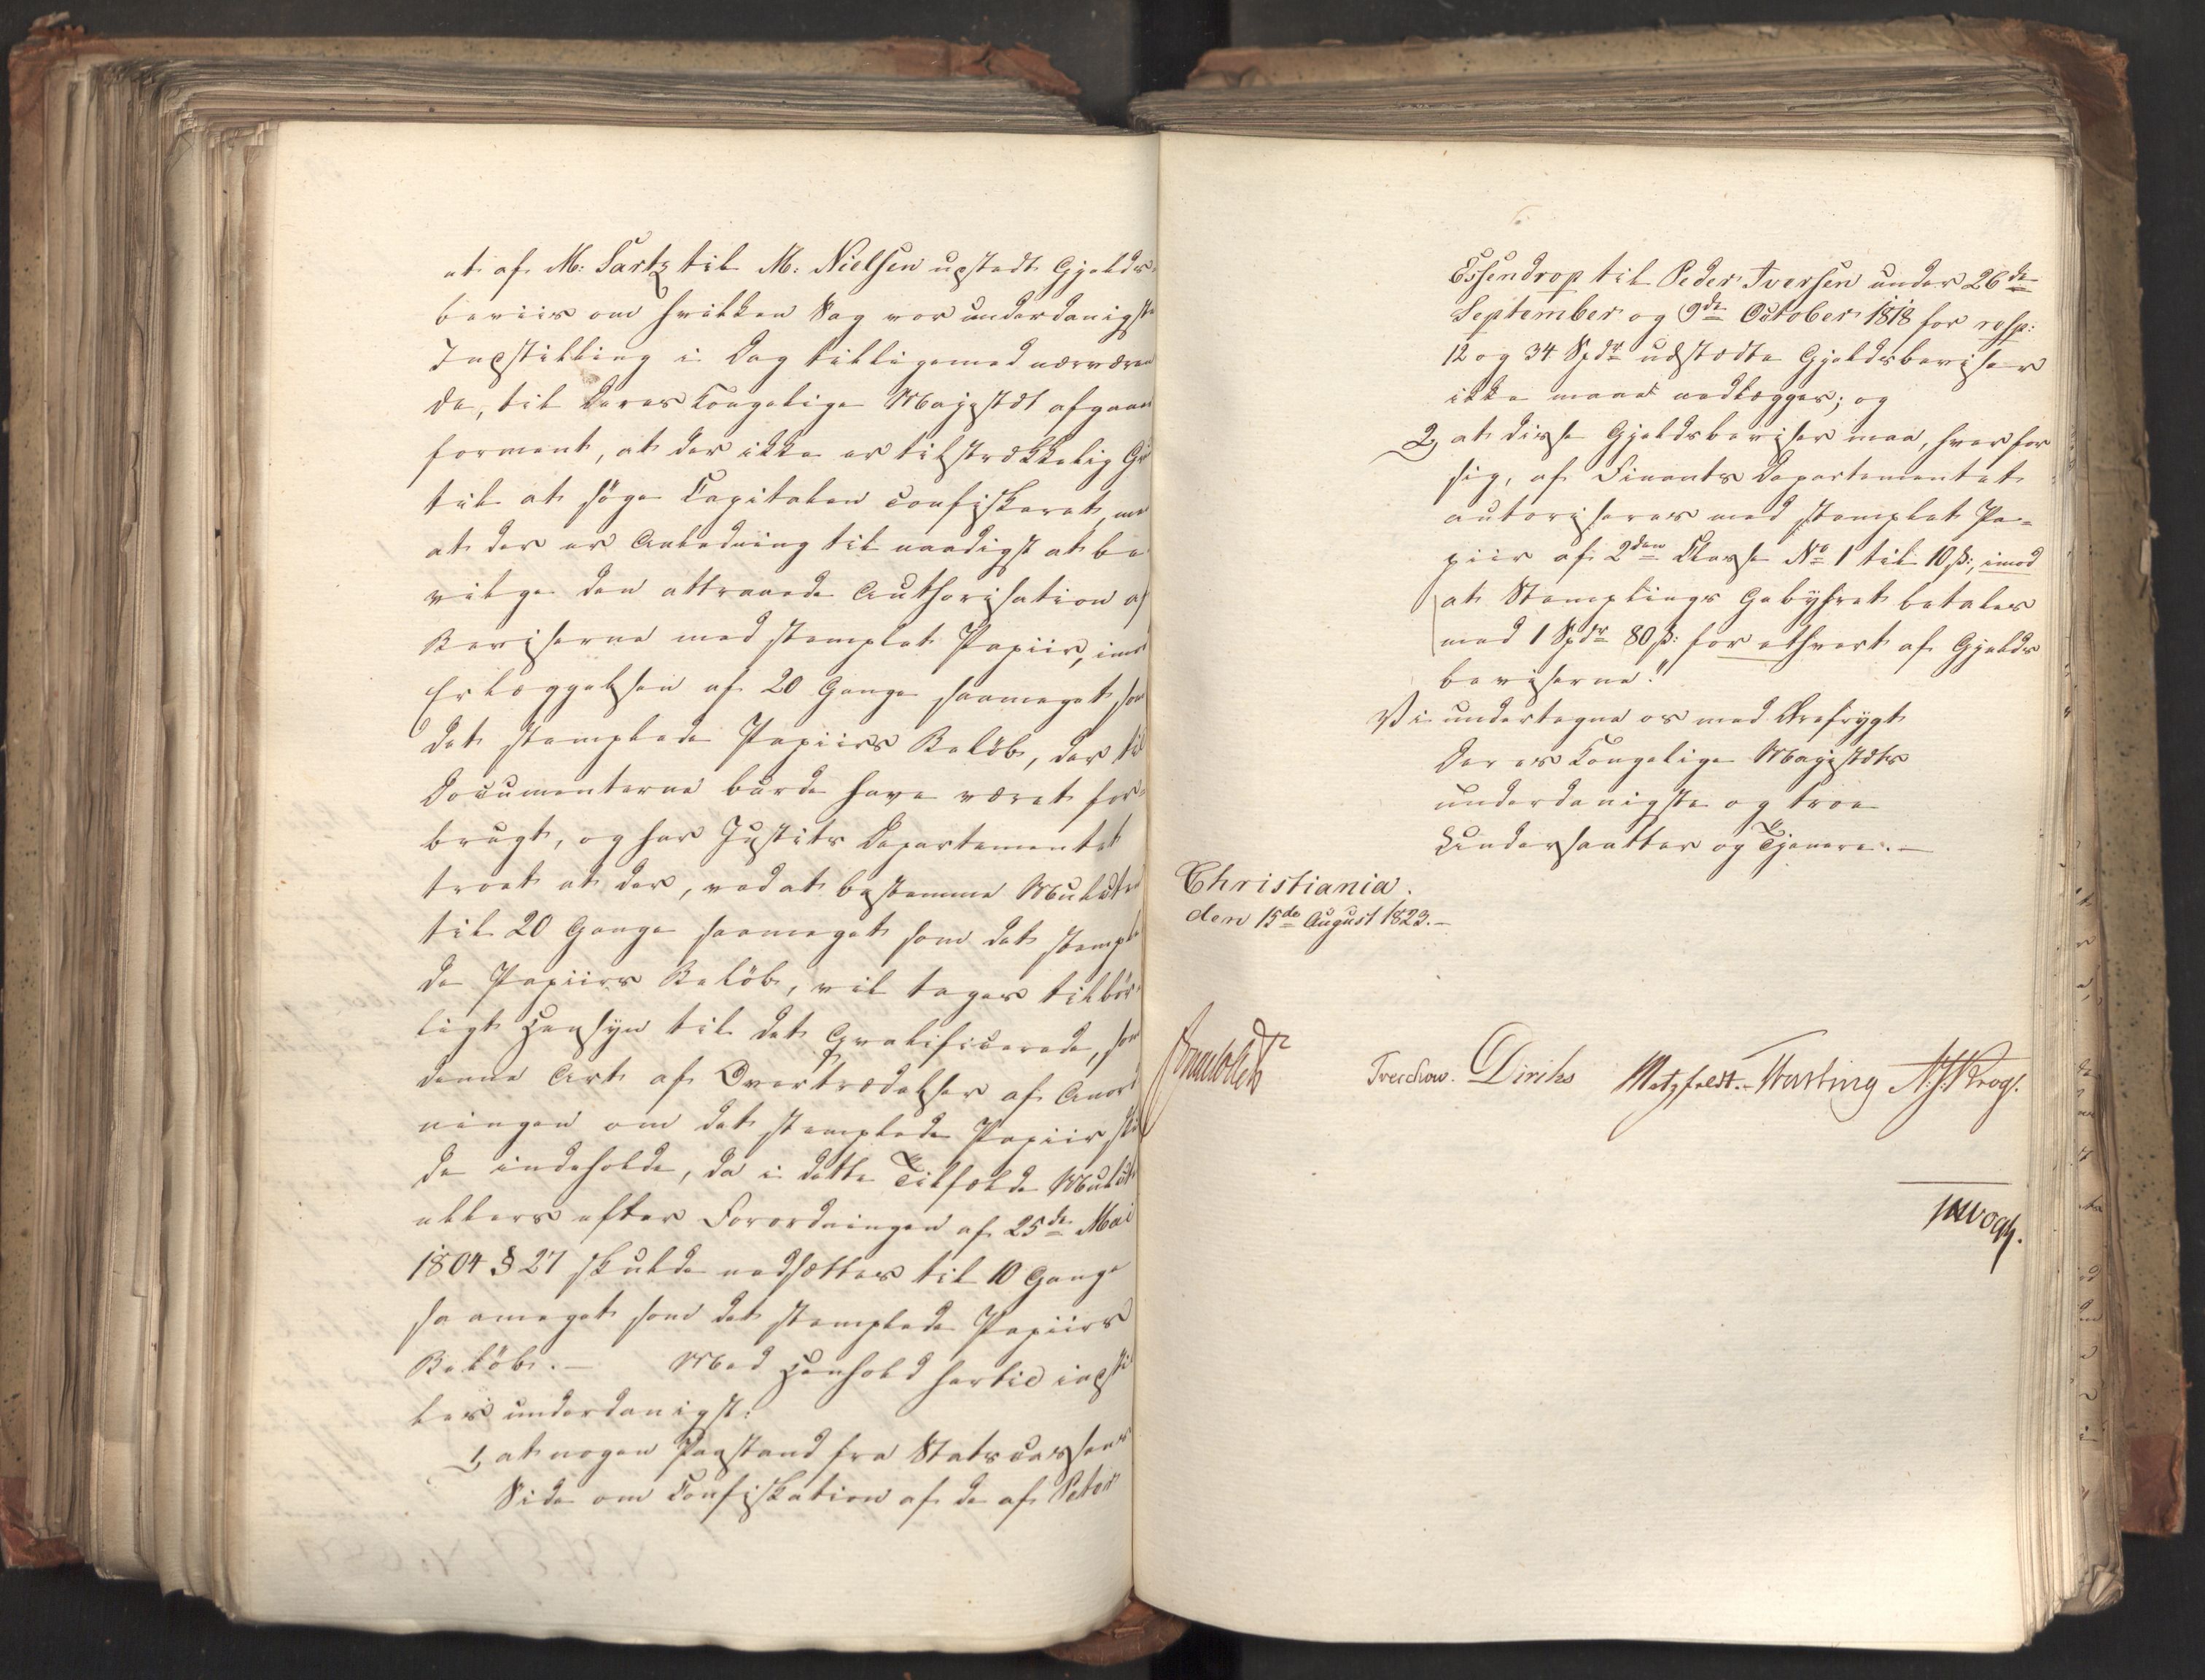 et af M: Sartz til M: Nielsen udstædt Gjelds-
beviis om hvilken Sag vor underdanigste
Indstilling i Dag tilligemed nærværen
de, til Deres Kongelige Majestæt afgaaer
formeent, at der ikke er tilstrækkelig Gr
til at søge Capitalen confiskeret, me
at der er Anledning til naadigst at be
vilge den attraaede Authorisation af
Beviserne med stemplet Papiir, imod
Erlæggelsen af 20 Gange saameget som
det stemplede Papiirs Beløb, der til
Documenterne burde have været for-
brugt, og har Justits Departementet
troet at der, ved at bestemme Mulcten
til 20 Gange saameget som det stemple
de Papiirs Beløb, vil tages tilbør-
ligt Hensyn til det Qvalificerede, som
denne Art af Overtrædelser af Anord
ningen om det stemplede Papiir sku
de indeholde, da i dette Tilfælde Mulct
ellers efter Forordningen af 25de Mai
1804 § 27 skulde nedsættes til 10 Gange
saameget som det stemplede Papiirs
Beløb. — Med Henhold hertil indstil
les underdanigst:
1, at nogen Paastand fra Statscassens
Side om Confiskation af de af Peter
Essendrop til Peder Iversen under 26de
September og 9de October 1818 for resp:
12 og 34 Spdr udstædte Gjeldsbeviser
ikke maae nedlægges; og
2, at disse Gjeldsbeviser maa, hver for
sig, af Finants Departementet
autoriseres med stemplet Pa=
piir af 2den Classe No 1 til 10 ß:, imod
at Stemplings Gebyhret betales
med 1 Spdr 80 ß: for ethvert af Gjelds
beviserne."
Vi undertegne os med Ærefrygt
Deres Kongelige Majestæts
underdanigste og troe
Undersaatter og Tjenere. —
Christiania.
den 15de August 1823. —
Treschow. Diriks Motzfeldt. Fasting
JHVogt.